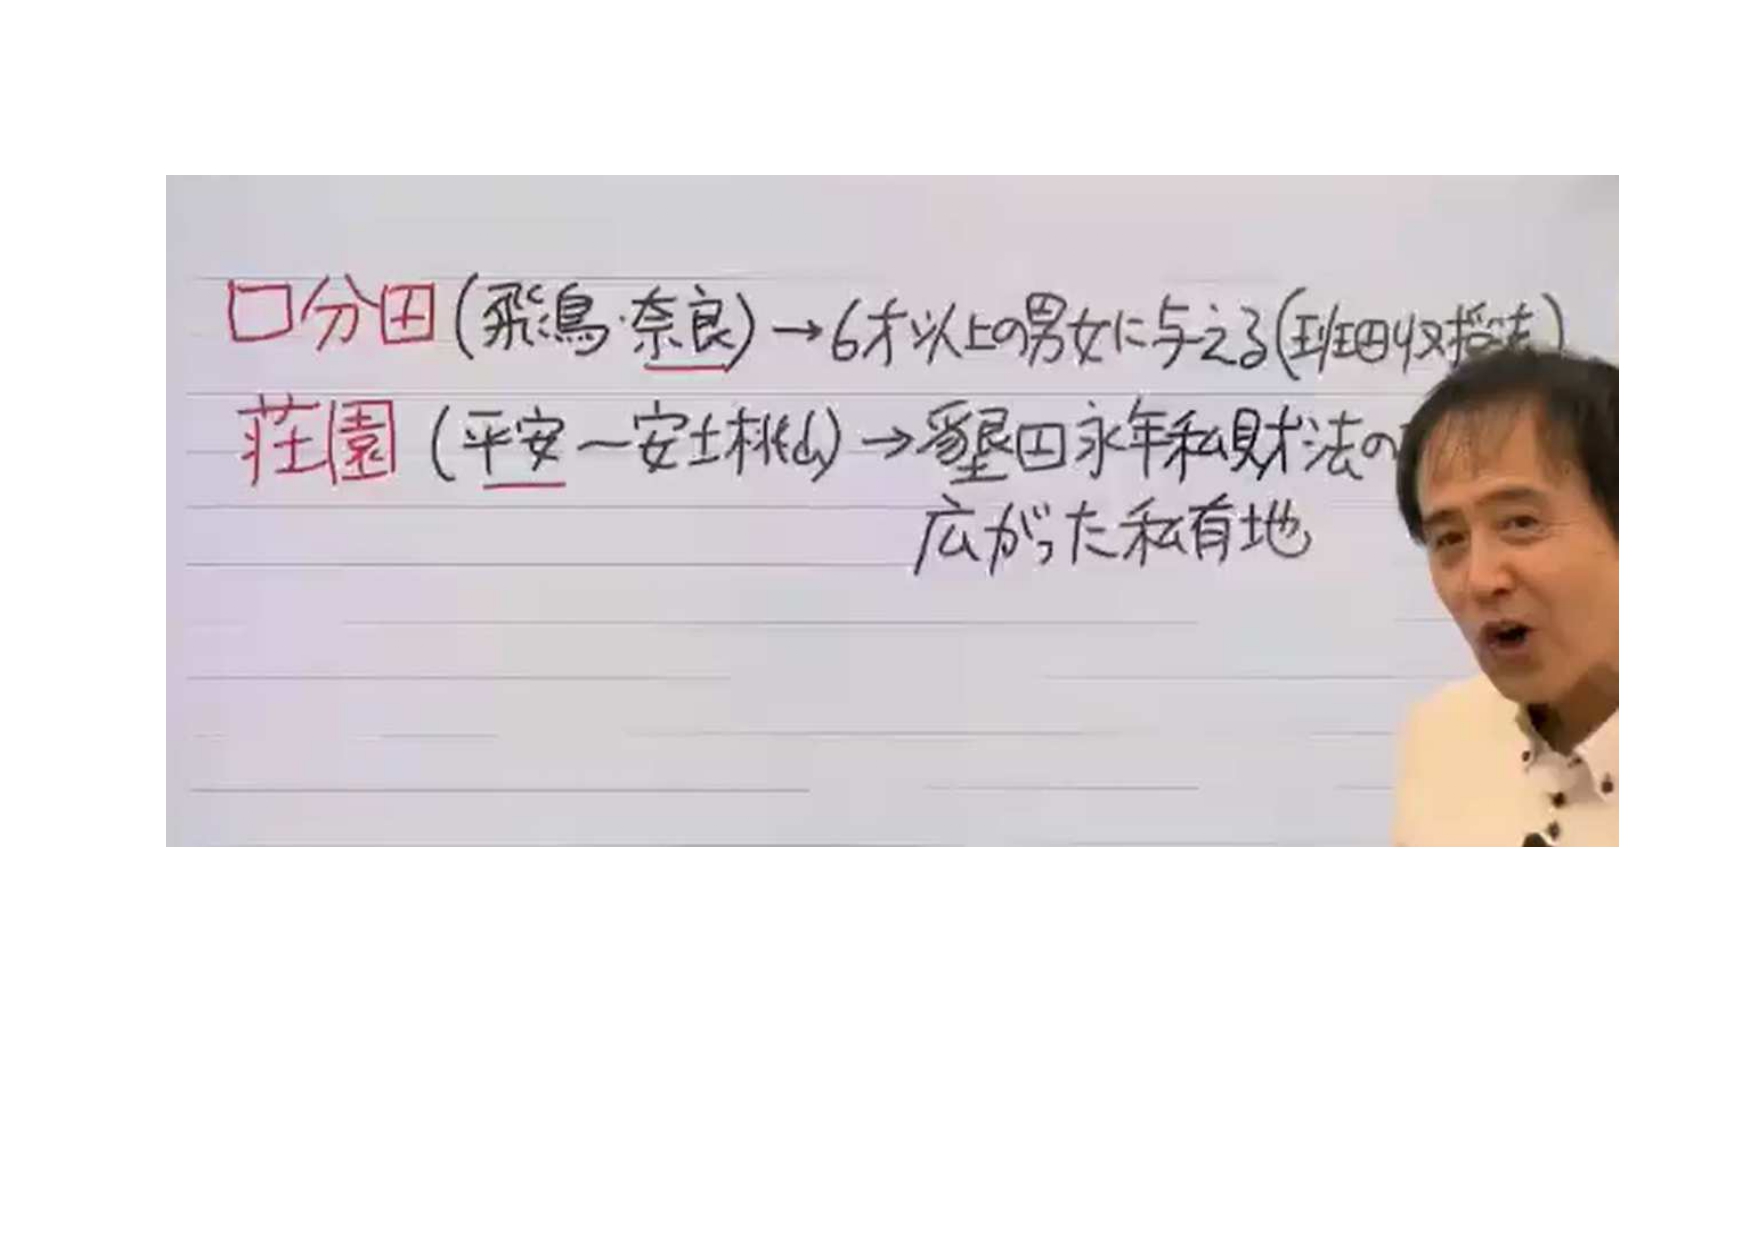 口分田(飛鳥・奈良)→6才以上の男女に与える(班田収授法)
荘園(平安〜安土桃山)→墾田永年私財法の
広がった私有地